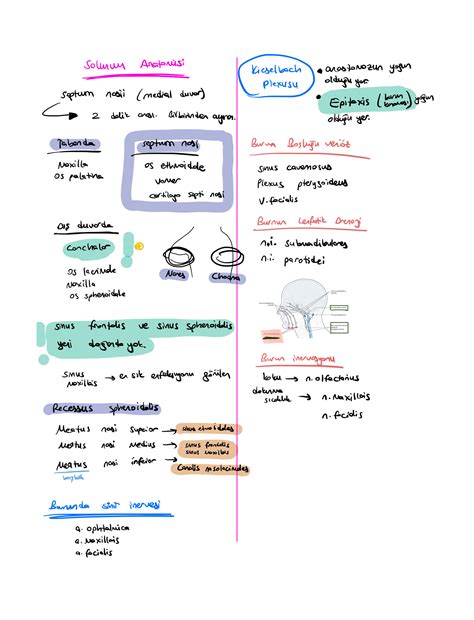 Solunum Anatomisi
septum nasi (medial duvar)
2 delik arası birbirinden ayırır.
Tabanda
Maxilla
os palatina
septum nasi
os ethmoidale
vomer
cartilago septi nasi
Dış duvarda
Conchalar
os lacrimale
maxilla
os sphenoidale
Nares
Choana
sinus frontalis ve sinus sphenoidalis
yeri doğumda yok.
sinus maxillaris → en sık enfeksiyonu görülen
Recessus sphenoidalis
Meatus nasi superior → sinus ethmoidales
Meatus nasi medius → sinus frontalis
sinus maxillaris
Meatus nasi inferior → Canalis nasolacrimalis
a. ophtalmica
a. maxillaris
a. facialis
Kieselbach
Plexusu
anastomozun yoğun
olduğu yer.
Epistaxis (burun kanaması) yoğun
olduğu yer.
Burun Boşluğu venöz
sinus cavernosus
Plexus pterygoideus
v. facialis
Burnun Lenfatik Drenajı
n.i. submandibulares
n.i. parotidei
Burun inervasyonu
koku → n. olfactorius
dokunma
sıcaklık → n. maxillaris
n. facialis